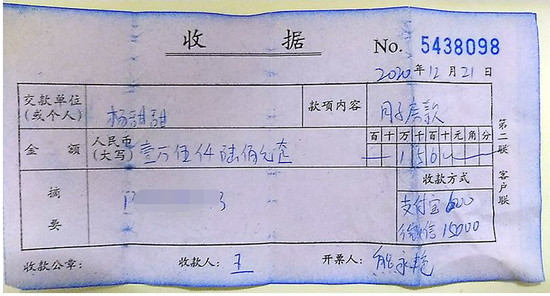 收 据 No. 5438098
2020年12月21日
交款单位(或个人) 杨甜甜 款项内容 月子房款
金额 人民币(大写) 壹万伍仟陆佰元整 百十万千百十元角分
收款方式
摘要 支付宝600
微信15000
收款公章: 收款人: 王 开票人: 熊永艳
第二联 客户联